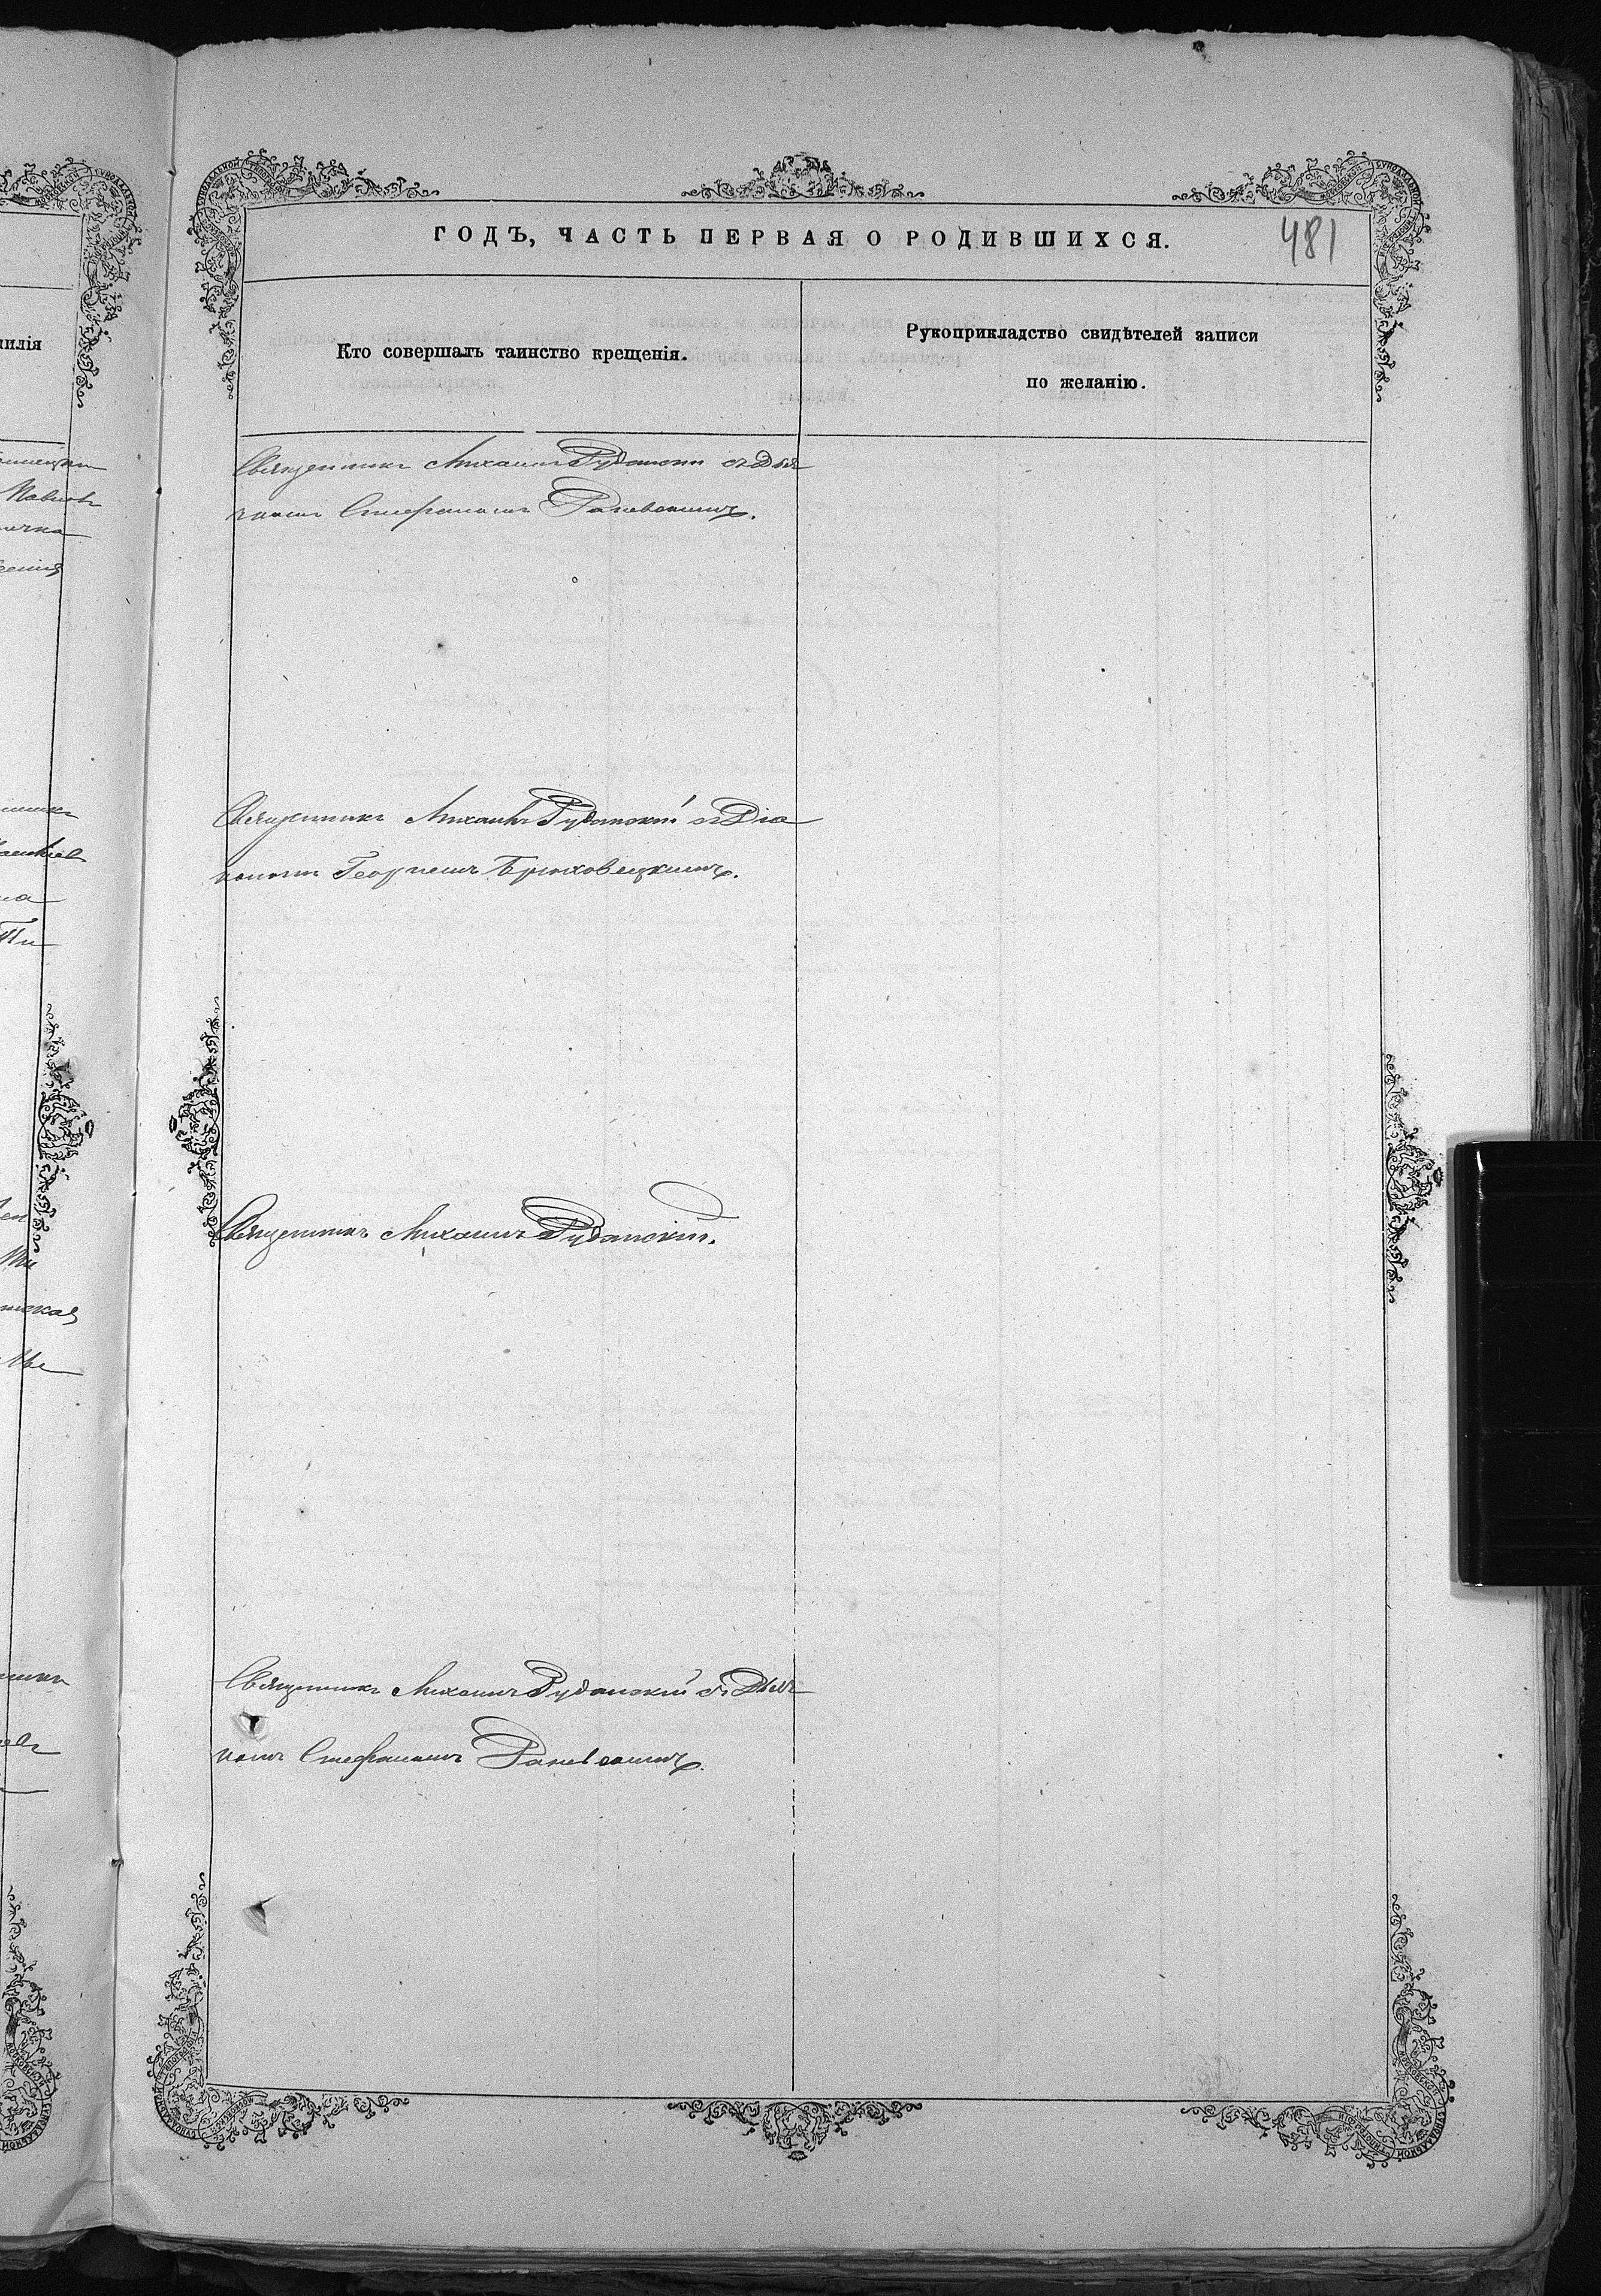 ГОДЪ, ЧАСТЬ ПЕРВАЯ О РОДИВШИХСЯ.
481
илія
Кто совершалъ таинство крещенія.
Рукоприкладство свидѣтелей записи
по желанію.
Священникъ Михаилъ Руданскій съ Дья
чкомъ Стефаномъ Раневскимъ.
Священникъ Михаилъ Руданскій съ Діа
кономъ Георгіемъ Брюховецкимъ.
Священникъ Михаилъ Руданскій.
Священникъ Михаилъ Руданскій съ Дьяч
комъ Стефаномъ Раневскимъ.